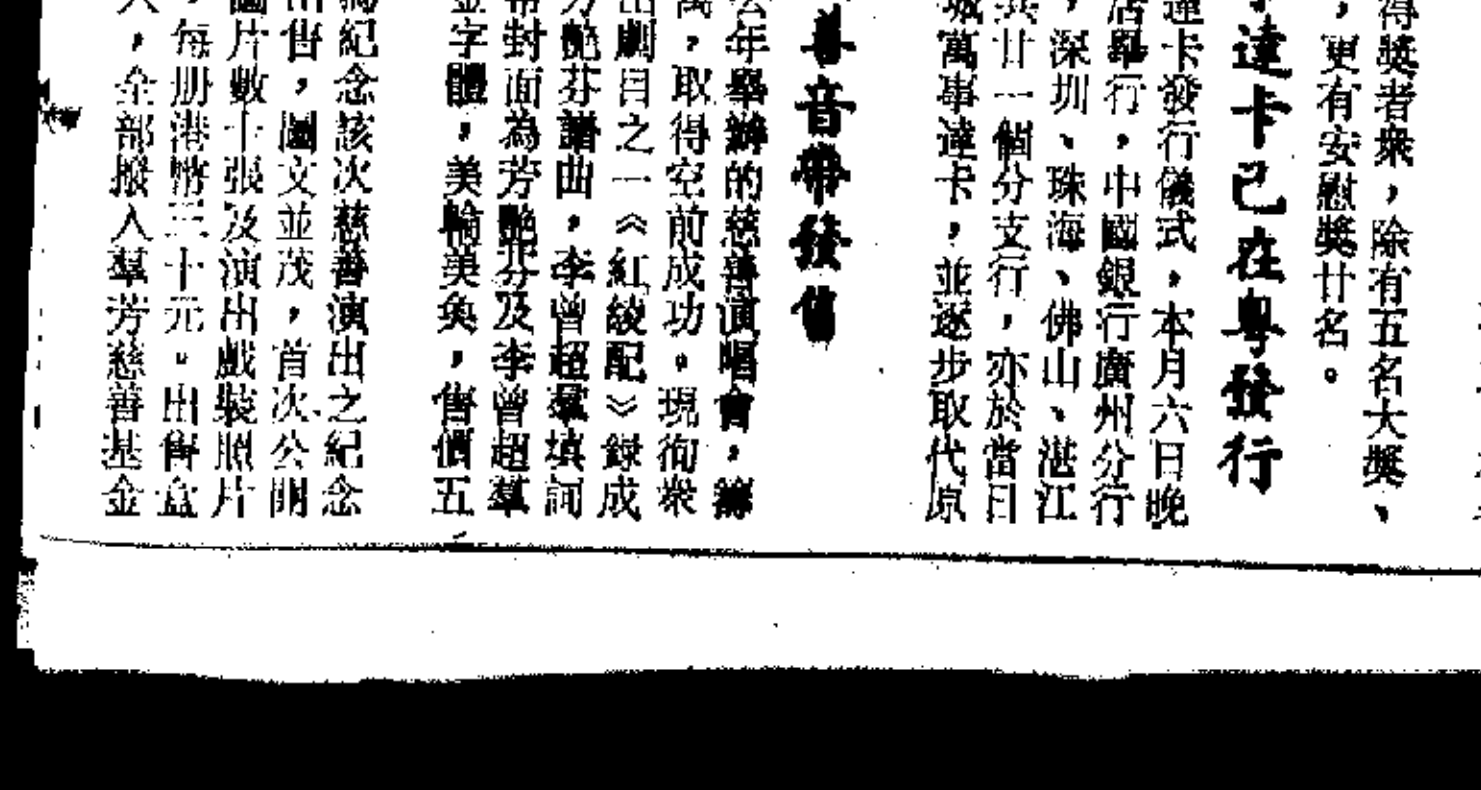 得獎者衆，除有五名大獎、
，更有安慰獎廿名。
達卡己在粤發行
達卡發行儀式，本月六日晚
店舉行，中國銀行廣州分行
，深圳、珠海、佛山、湛江
共廿一個分支行，亦於當日
城萬事達卡，並逐步取代原
善音帶發售
去年舉辦的慈善演唱會，籌
萬，取得空前成功。現徇衆
出劇目之一《紅綾配》錄成
芳艶芬譜曲，李曾超羣填詞
帶封面為芳艷芬及李曾超羣
金字體，美輪美奐，售價五
為紀念該次慈善演出之紀念
出售，圖文並茂，首次公開
圖片數十張及演出戲裝照片
，每册港幣三十元。出售盒
，全部撥入羣芳慈善基金